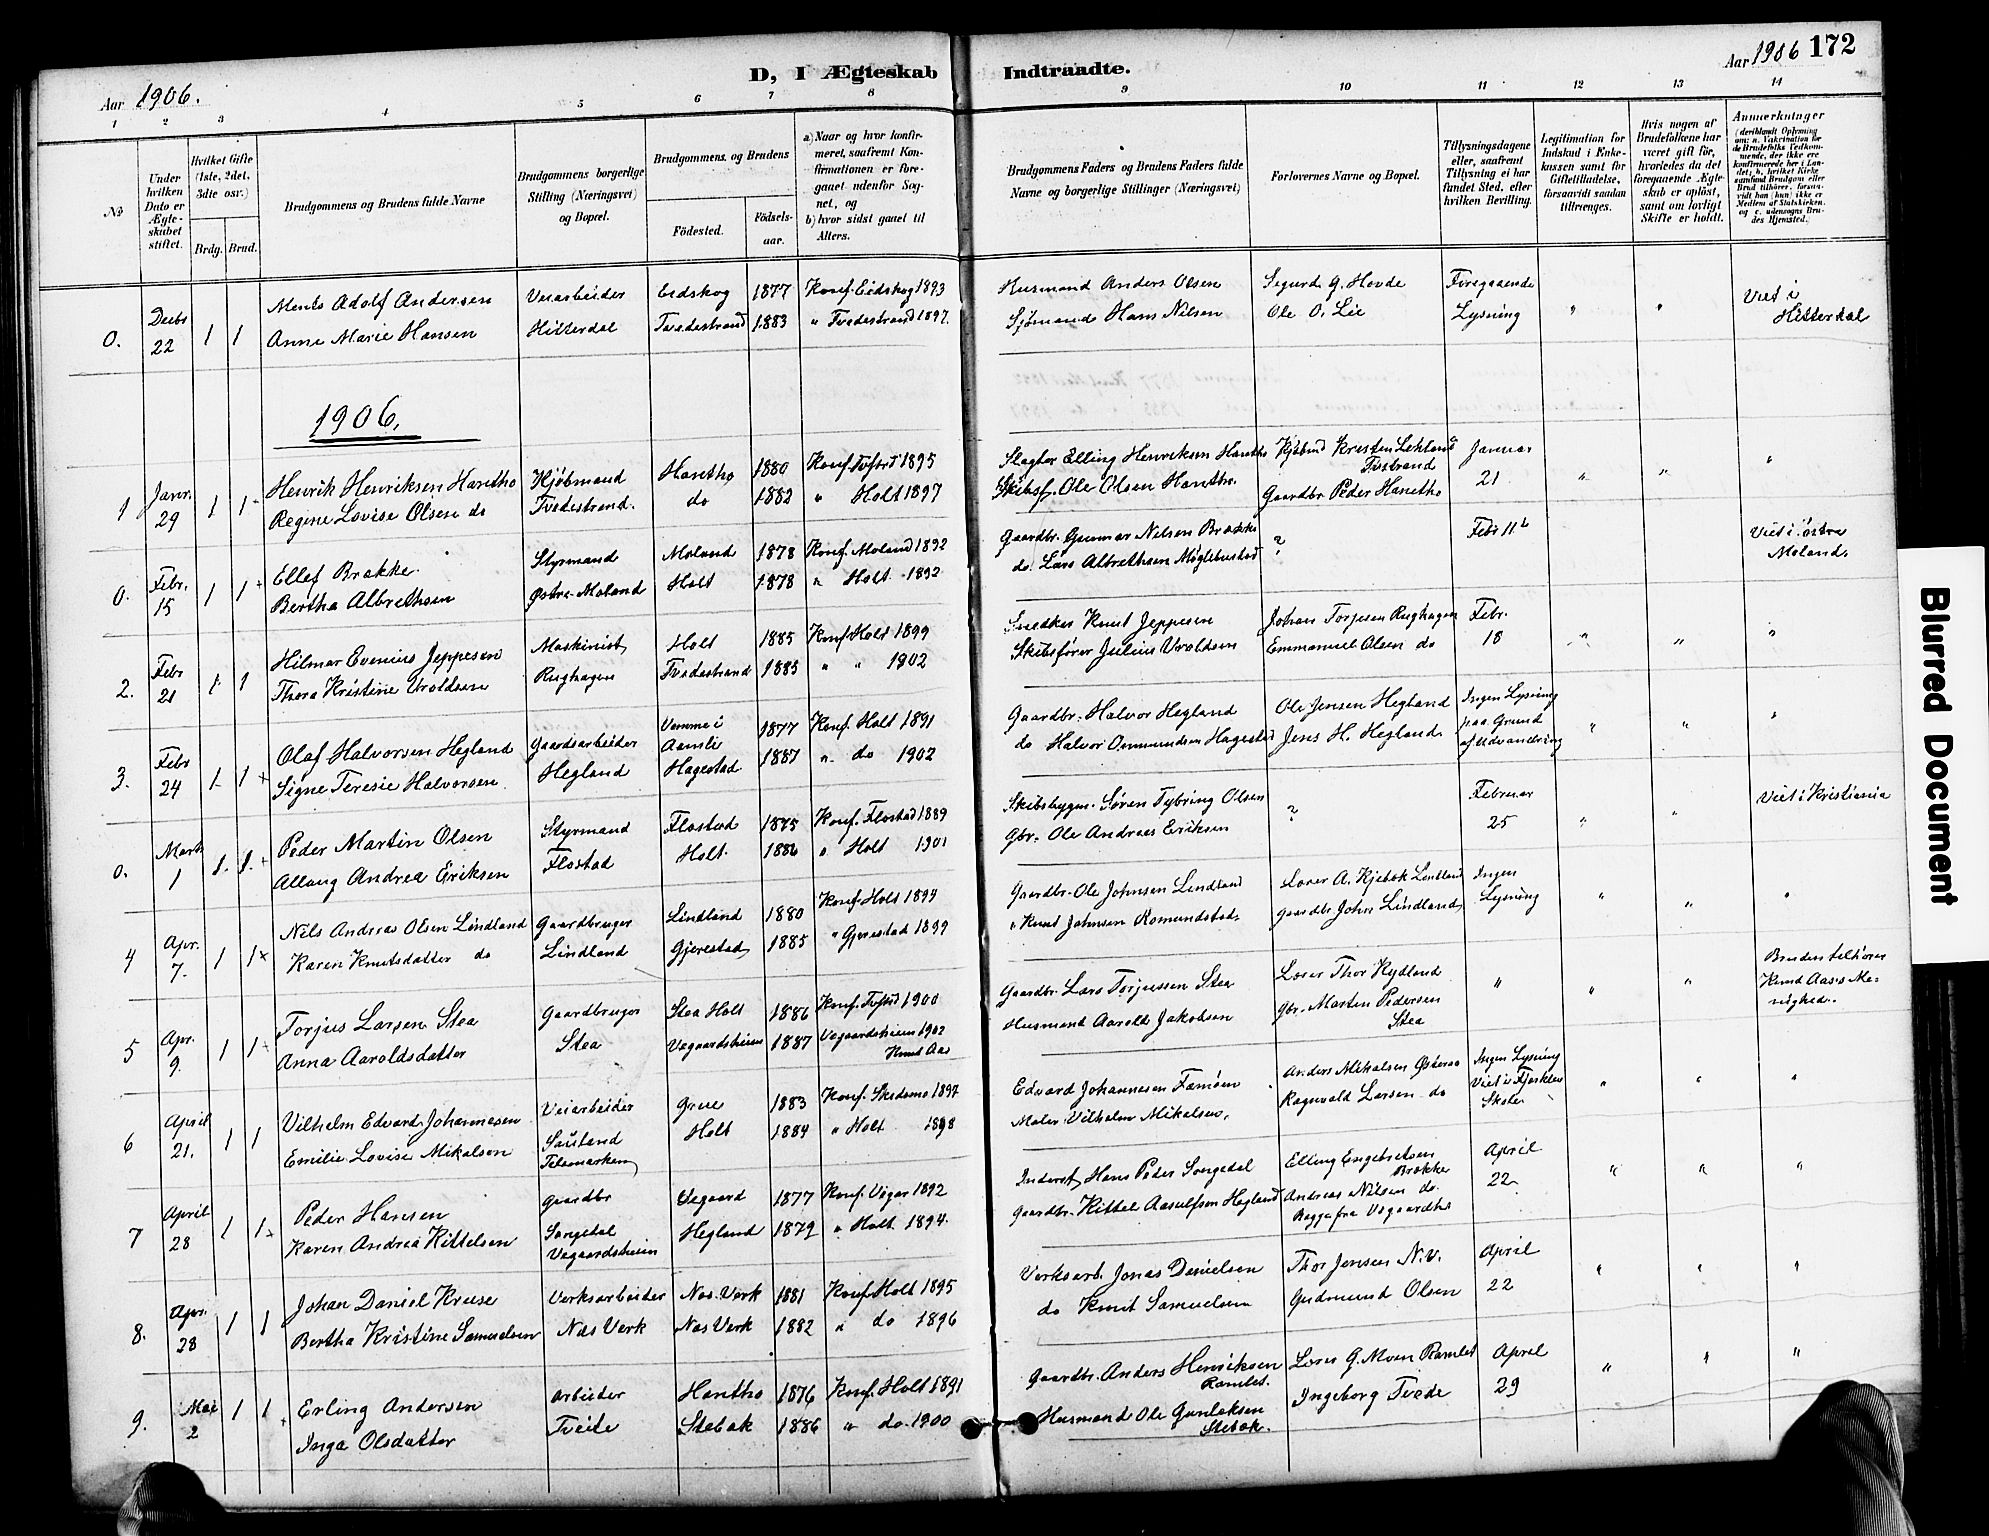 D, I Ægteskab Indtraadte.
Aar 1906.
Aar 1906 172
1 2 3 4 5 6 7 8 9 10 11 12 13 14
№
Under hvilken Dato er Ægteskabet stiftet.
Hvilket Gifte (1ste, 2det, 3die osv.)
Brdg. Brud.
Brudgommens og Brudens fulde Navne
Brudgommens borgerlige Stilling (Næringsvei) og Bopæl.
Brudgommens og Brudens
Födested. Födselsaar.
a) Naar og hvor konfirmeret, saafremt Konfirmationen er foregaaet udenfor Sognet, og
b) hvor sidst gaaet til Alters.
Brudgommens Faders og Brudens Faders fulde Navne og borgerlige Stillinger (Næringsvei)
Forlovernes Navne og Bopæl.
Tillysningsdagene eller, saafremt Tillysning ei har fundet Sted, efter hvilken Bevilling.
Legitimation for Indskud i Enkekassen samt for Giftetilladelse, forsaavidt saadan tiltrænges.
Hvis nogen af Brudefolkene har været gift för, hvorledes da det foregaaende Ægteskab er oplöst, samt om lovligt Skifte er holdt.
Anmærkninger
0. Decbr 22 1 1
Adolf Andersen Veiarbeider Eidskog 1877 Konf. Eidskog 1893 Husmand Anders Olsen Sigurd G. Hovde Foregaaende Viet i
Anne Marie Hansen Hitterdal Tvedestrand 1883 " Tvedestrand 1897. Sjømand Hans Nilsen Ole O. Lie Lysning " " Hitterdal
1906.
1 Janr. 29 1 1
Henrik Henriksen Hantho Kjöbmand Hantho 1880 Konf. Tvestrd 1895 Slagter Elling Henriksen Hantho Kjöbmd Kristen Tvstrand Januar
Regine Lovise Olsen do Tvedestrand. do 1882 " Holt 1897 Skibsf. Ole Olsen Hantho. Gaardbr. Peder Hantho 21 " " "
0. Febr. 15 1 1
Ellef Brække. Styrmand Moland 1878 Konf. Moland 1892 Gaardbr. Gunnar Nilsen Brække ? Febr 11 Viet i østre
Bertha Albrethsen Østre Moland Holt 1878 " Holt 1892 do. Lars Albrethsen Møglebustad Moland.
2. Febr 21 1 1
Hilmar Evenius Jeppesen Maskinist Holt 1885 Konf. Holt 1899 Snedker Knut Jeppesen Johan Torjusen Rughagen Febr.
Thora Kristine Uroldsen Rughagen Tvedestrand 1885 " " 1902 Skibsfører Julius Uroldsen Emmanuel Olsen do 18 " " "
3. Febr 24 1 1
Olaf Halvorsen Hegland Gaardsarbeider Vemme i Aamli 1877 Konf. Holt 1891 Gaardbr. Halvor Hegland Ole Jensen Hegland Ingen Lysning paa Grund
Signe Teresie Halvorsen Hegland Hagestad 1887 " do 1902 do Halvor Osmundsen Hagestad Jens H. Hegland. af Udvandring " " "
0. Marts 1 1. 1.
Peder Martin Olsen Styrmand Flostad 1875 Konf. Flostad 1889 Skibsbygm. Søren Tybring Olsen ? Februar Viet i Kristiania
Andrea Eriksen Flostad Holt 1886 " Holt 1901 Gbr. Ole Andreas Eriksen 25 " "
4 Apr. 7. 1 1
Nils Andreas Olsen Lindland Gaardbruger Lindland 1880 Konf. Holt 1894 Gaardbr. Ole Johnsen Lindland A. Lindland Ingen
Karen Knutsdatter do Lindland Gjerestad 1885 " Gjerestad 1899 " Knut Johnsen Romundstad. Gaardbr. John Lindland Lysning " " "
5 Apr. 9. 1 1
Torjus Larsen Stea Gaardbruger Stea Holt 1886 Konf. Tvstrd 1900 Gaardbr. Lars Torjussen Stea Thor Rydland " " " Bruden tilhører
Anna Aaroldsdatter Stea Vegaardsheien 1887 Vegaardsheien 1902 Knut Aas Husmand Aarold Jakobsen Gbr. Marten Pedersen Stea Knud Aas's Menighed.
6 April 21. 1 1
Vilhelm Edvard Johannesen Veiarbeider Grue 1883 Konf. Skedsmo 1897 Edvard Johannesen Anders Mikalsen Ingen Lysning
Emilie Lovise Mikalsen Sauland Telemarken Holt 1884 " Holt 1898 Maler Vilhelm Mikalsen. Ragnvald Larsen do Viet i " " "
7 April 28 1 1
Peder Hansen Gaardbr Vegaard 1877 Konf. Vegar 1892 Inderst Hans Peder Songedal Elling Engebretsen Brække April
Karen Andrea Kittelsen Songedal Vegaardsheien Hegland 1879 " Holt 1894. Gaardbr. Kittel Aasulfsen Hegland Andreas Nilsen do. 22 " " "
Begge fra
8. Apr. 28 1 1
Johan Daniel Kruse Verksarbeider Næs Verk 1881 Konf. Holt 1895 Verksarb. Jonas Danielsen Thor Jensen N.V. April
Bertha Kristine Samuelsen Næs Verk Næs Verk 1882 " do 1896 do Knut Samuelsen Gudmund Olsen 22 " " "
9. Mai 2 1 1
Erling Andersen Arbeider Hantho 1876 Konf. Holt 1891 Gaardbr. Anders Henriksen Ramlet. G. Moen Ramlet April
Inga Olsdatter Tveite Stebak 1886 " do. 1900 Husmand Ole Gunleksen Stebak. Ingeborg Tvede 29 " " "
Blurred Document